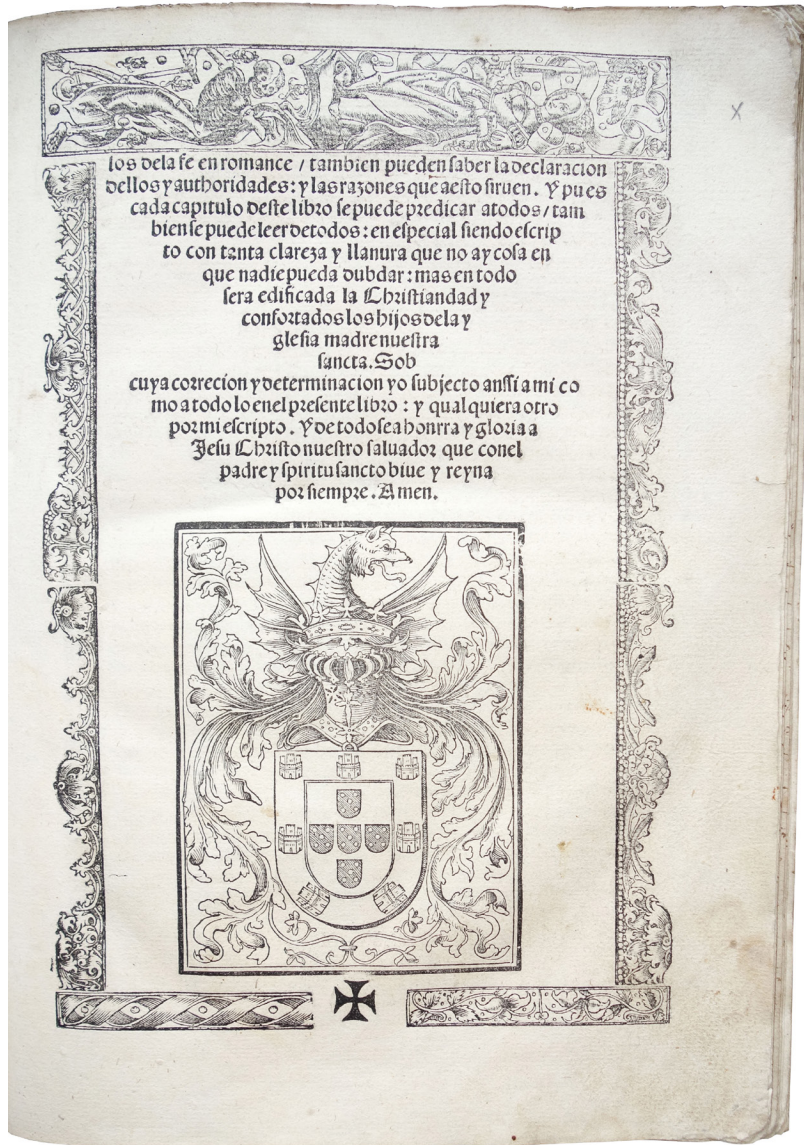 los dela fe en romance / tambien pueden saber la declaracion
dellos y authoridades : y las razones que aesto siruen . Y pues
cada capitulo deste libro se puede predicar a todos / tam
bien se puede leer de todos : en especial siendo escrip
to con tanta clareza y llanura que no ay cosa en
que nadie pueda dubdar : mas en todo
sera edificada la Christiandad y
confortados los hijos dela y
glesia madre nuestra
sancta . Sob
cuya correcion y determinacion yo subjecto anssi a mi co
mo a todo lo enel presente libro : y qualquiera otro
por mi escripto . Y de todo sea honrra y gloria a
Jesu Christo nuestro saluador que conel
padre y spiritu sancto biue y reyna
por siempre . Amen .